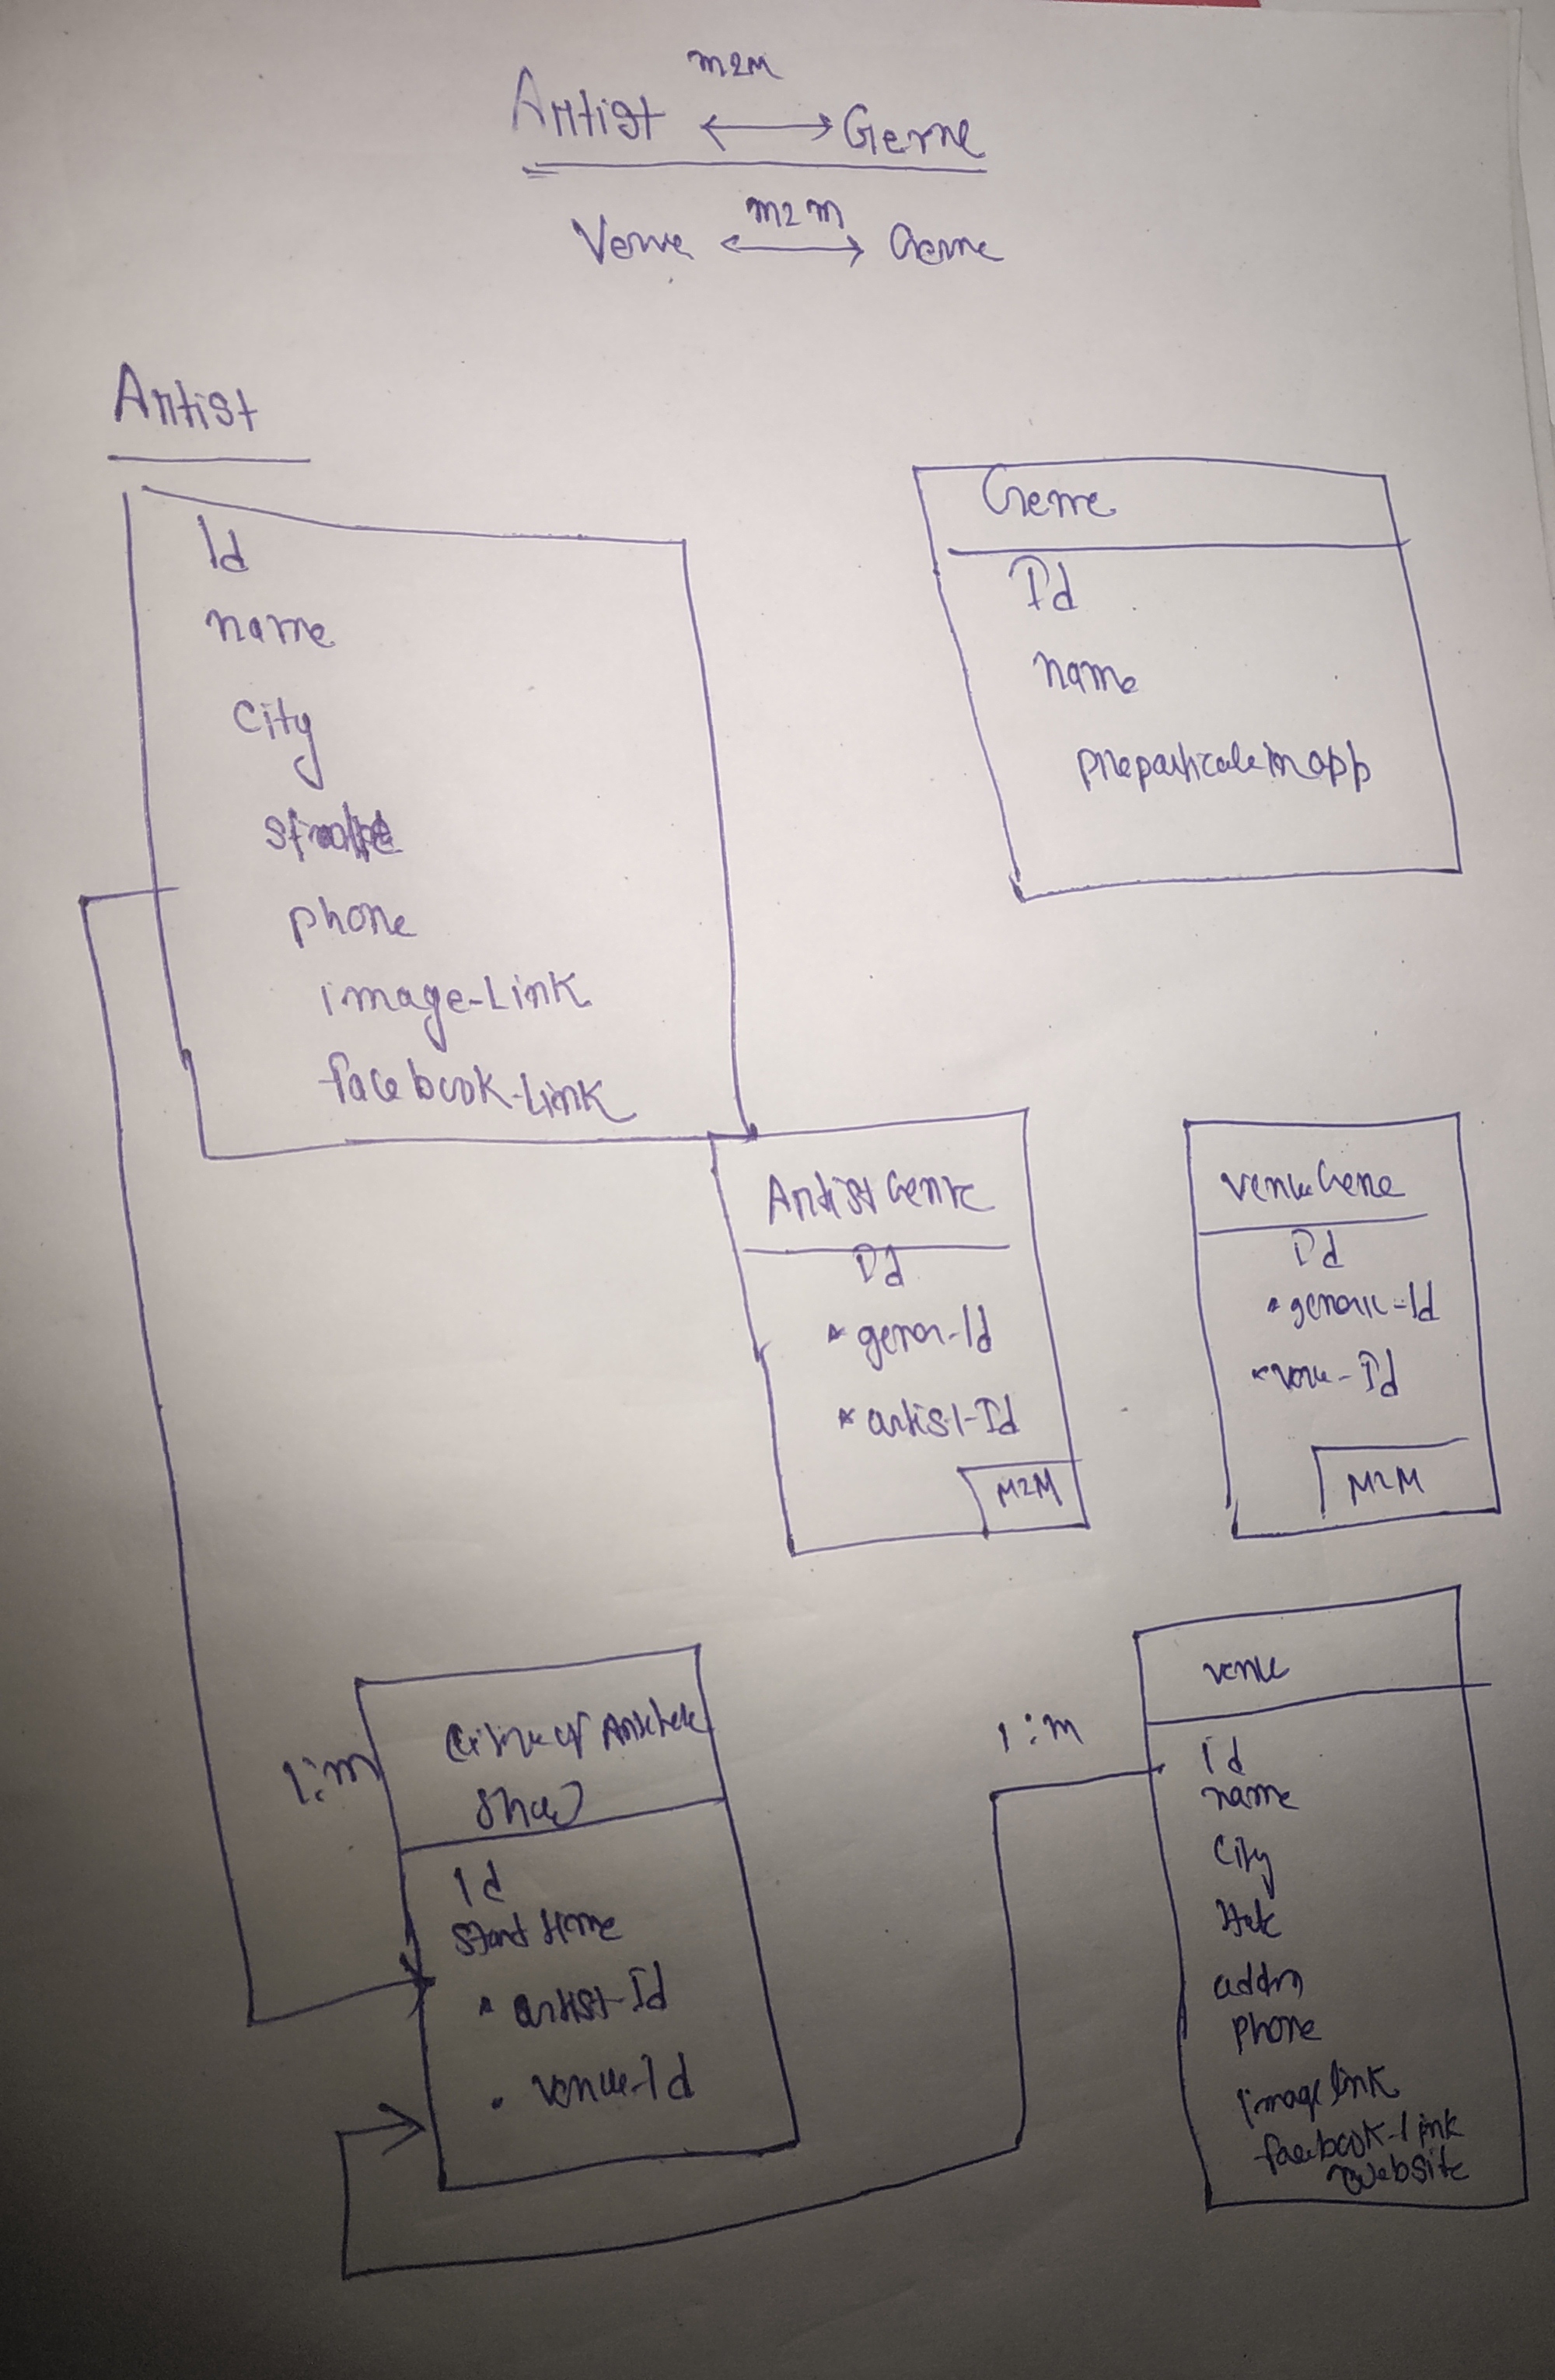 m2M
Artist ⟷ Gerne
m2m
Venue ⟷ Gerne
Artist
Id
name
City
state
phone
image-Link
facebook-Link
Gerne
Id
name
ArtistGenre
Id
* genre-Id
* artist-Id
M2M
venueGene
Id
* generic-Id
* venue-Id
M2M
1:m
Show
Id
Start time
* artist-Id
venue-Id
1:m
venue
id
name
City
state
phone
image link
facebook-link
website